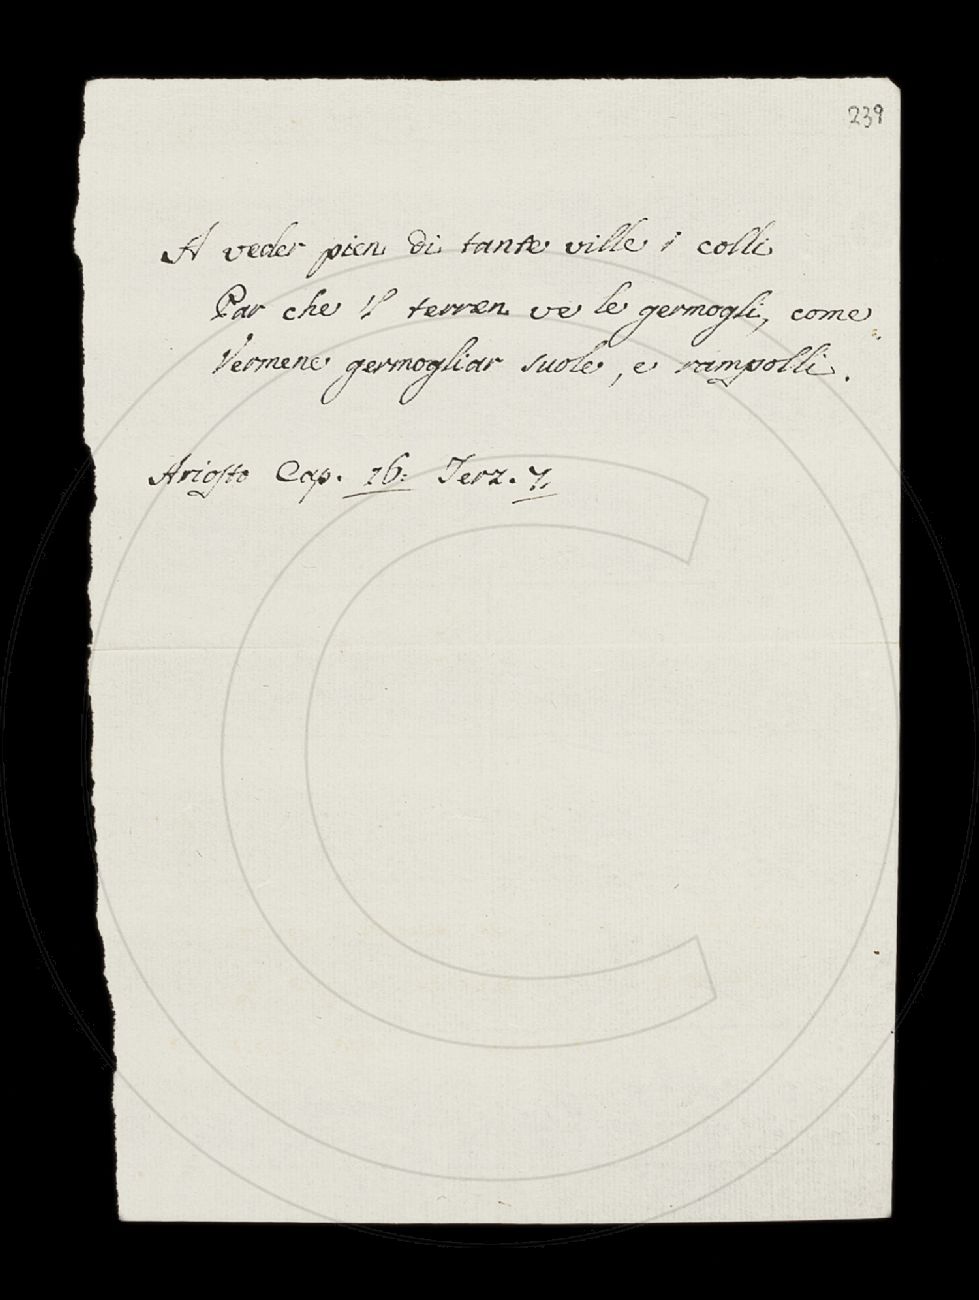 239
A veder pien di tante ville i colli
Par che 'l terren ve le germogli, come
Vermene germogliar suole, e rampolli.
Ariosto Cap. 16. Terz. 7.